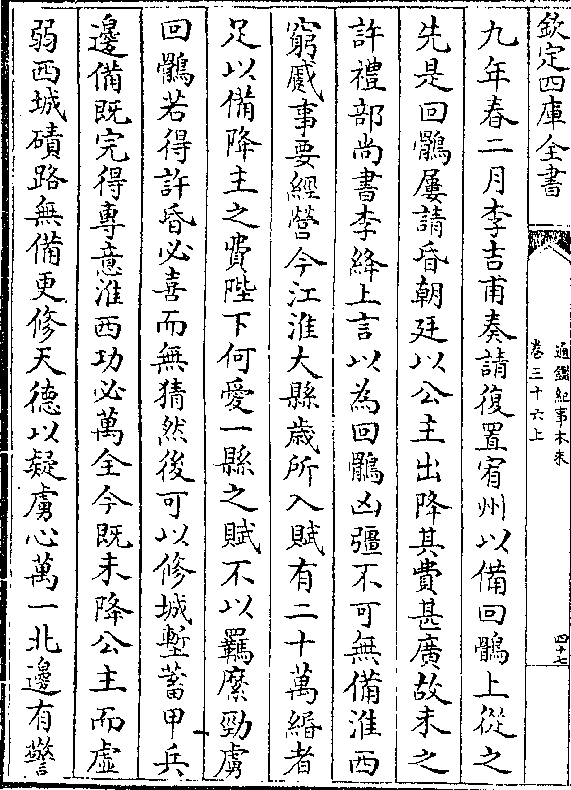 欽定四庫全書
通鑑紀事本末
卷三十六上
四十七
九年春二月李吉甫奏請復置宥州以備回鶻上從之
先是回鶻屢請昏朝廷以公主出降其費甚廣故未之
許禮部尚書李絳上言以為回鶻凶彊不可無備淮西
窮蹙事要經營今江淮大縣歳所入賦有二十萬緡者
足以備降主之費陛下何愛一縣之賦不以羈縻勁虜
回鶻若得許昏必喜而無猜然後可以修城塹蓄甲兵
邊備既完得專意淮西功必萬全今既未降公主而虛
弱西城磧路無備更修天德以疑虜心萬一北邊有警